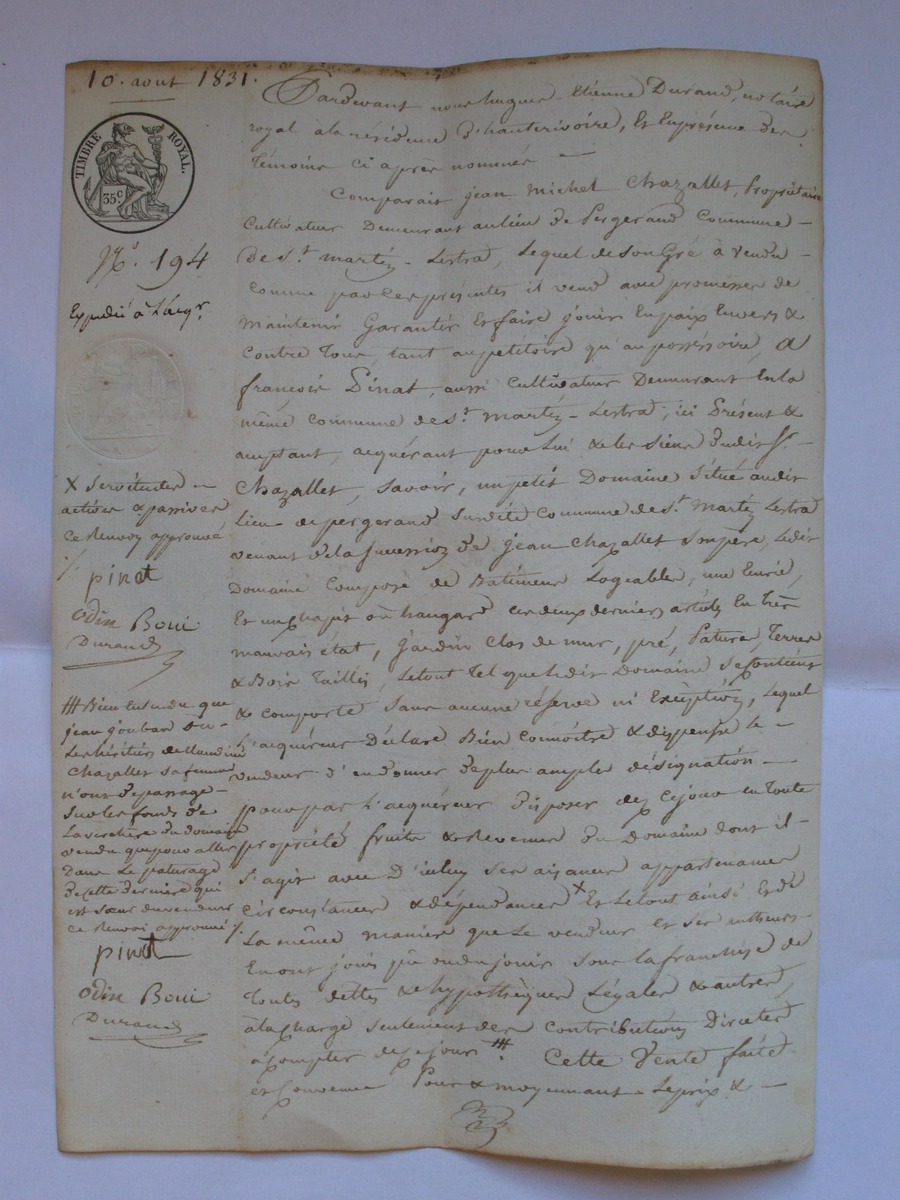 10. aout 1831.
TIMBRE ROYAL.
35 c
N.° 194
Expédié à l'acqr.
X servitudes
actives & passives
ce Renvoy approuvé
pinat
odin Boui
Durand
### Bien entendu que
jean joubard ou
les héritiers de Claudine
Chazallet sa femme
n'ont de passage
sur les fonds de
la verchère du domaine
vendu que pour aller
Dans le paturage
de cette dernière qui
est sœur du vendeur
ce Renvoi approuvé
pinat
odin Boui
Durand
Pardevant nous hugues Etienne Durand, notaire
royal à la résidence d'hauterivoire, Et En présence des
Témoins ci après nommés
Comparait jean Michel Chazallet, Propriétaire
Cultivateur Demeurant au lieu de Pergerand Commune
de St. martin Lestra, Lequel de son Gré à vendu
comme par ces présentes il vend avec promesses de
maintenir Garantir Et faire jouir En paix Envers &
contre Tous, tant au pétitoire qu'au possessoire, a
francois Pinat, aussi cultivateur Demeurant En la
même commune de St. martin Lestra, ici Présent &
acceptant, acquérant pour lui & les siens dudit Sr.
Chazallet, savoir, un petit Domaine situé audit
Lieu de pergerand susdite commune de St. martin Lestra
venant de la succession de jean Chazallet son père, Ledit
Domaine Composé de Batimens Logeables, une Ecurie,
Et un chapit ou hangard ces deux derniers articles En très
mauvais état, jardin clos de mur, pré, Pature, Terres
& Bois Taillis, Le tout Tel que ledit Domaine se contient
& comporte sans aucune réserve ni Exception, Lequel
l'acquéreur Déclare Bien connoitre & dispense le
vendeur d'en donner de plus ample désignation
pour par L'acquéreur disposer dez ce jour en toute
propriété fruits & Revenus du domaine dont il
s'agit avec D'icelui ses aisances appartenances
circonstances & dépendances X Et Le tout ainsi Et de
La même manière que Le vendeur et ses auteurs
En ont joui pu ou du jouir sous la franchise de
toutes dettes & hypothèques Légales & autres,
à la charge seulement des contributions Directes
à compter de ce jour ### Cette Vente faite
et Convenue Pour & moyennant Le prix &